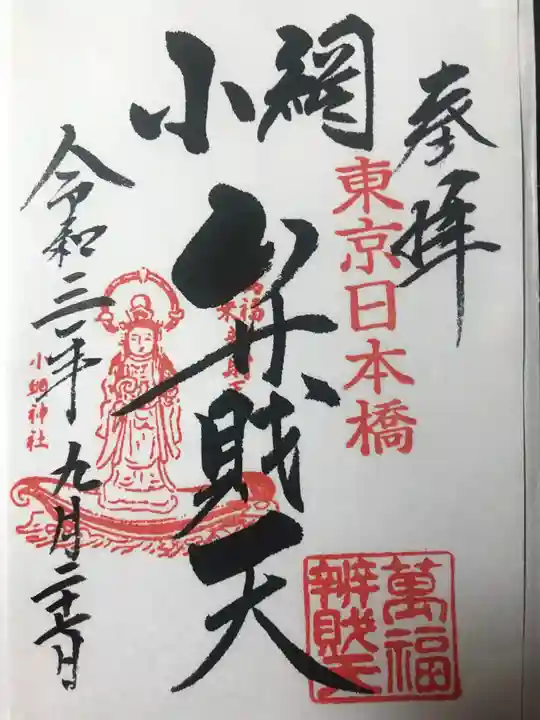 奉拝
東京日本橋
小網
弁財天
萬福
辨財天
小網神社
令和三年九月二十七日